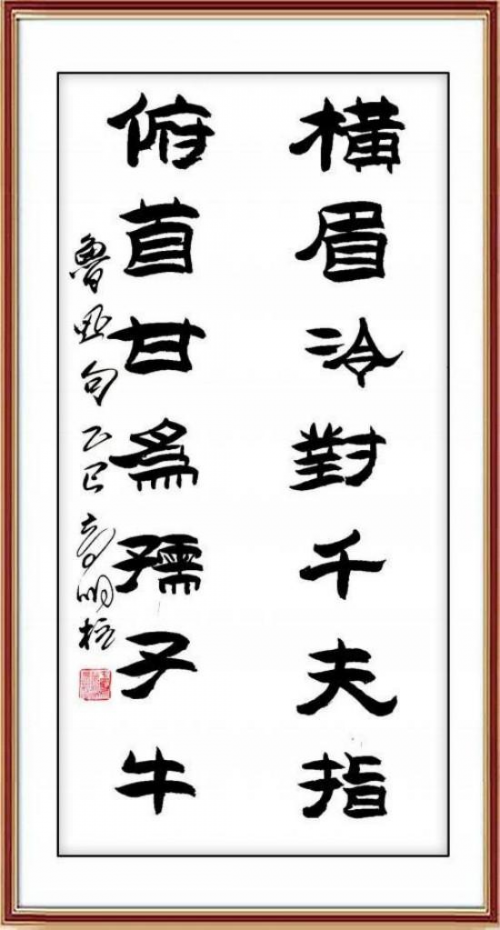 橫眉冷對千夫指
俯首甘為孺子牛
魯迅句 乙巳